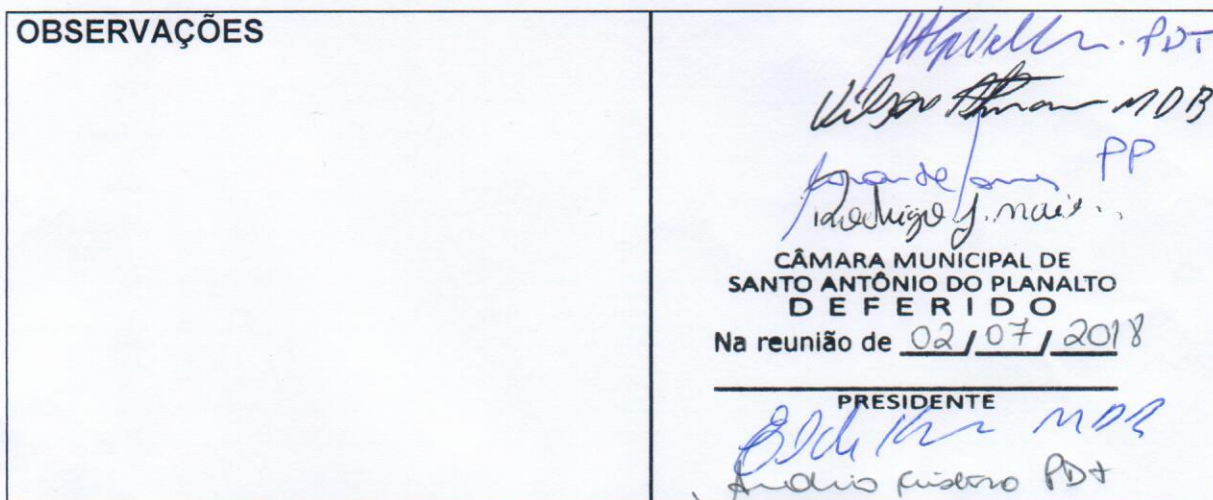 OBSERVAÇÕES
PDT
MDB
PP
Rodrigo J.
CÂMARA MUNICIPAL DE
SANTO ANTÔNIO DO PLANALTO
DEFERIDO
Na reunião de 02/07/2018
PRESIDENTE
MDB
PDT